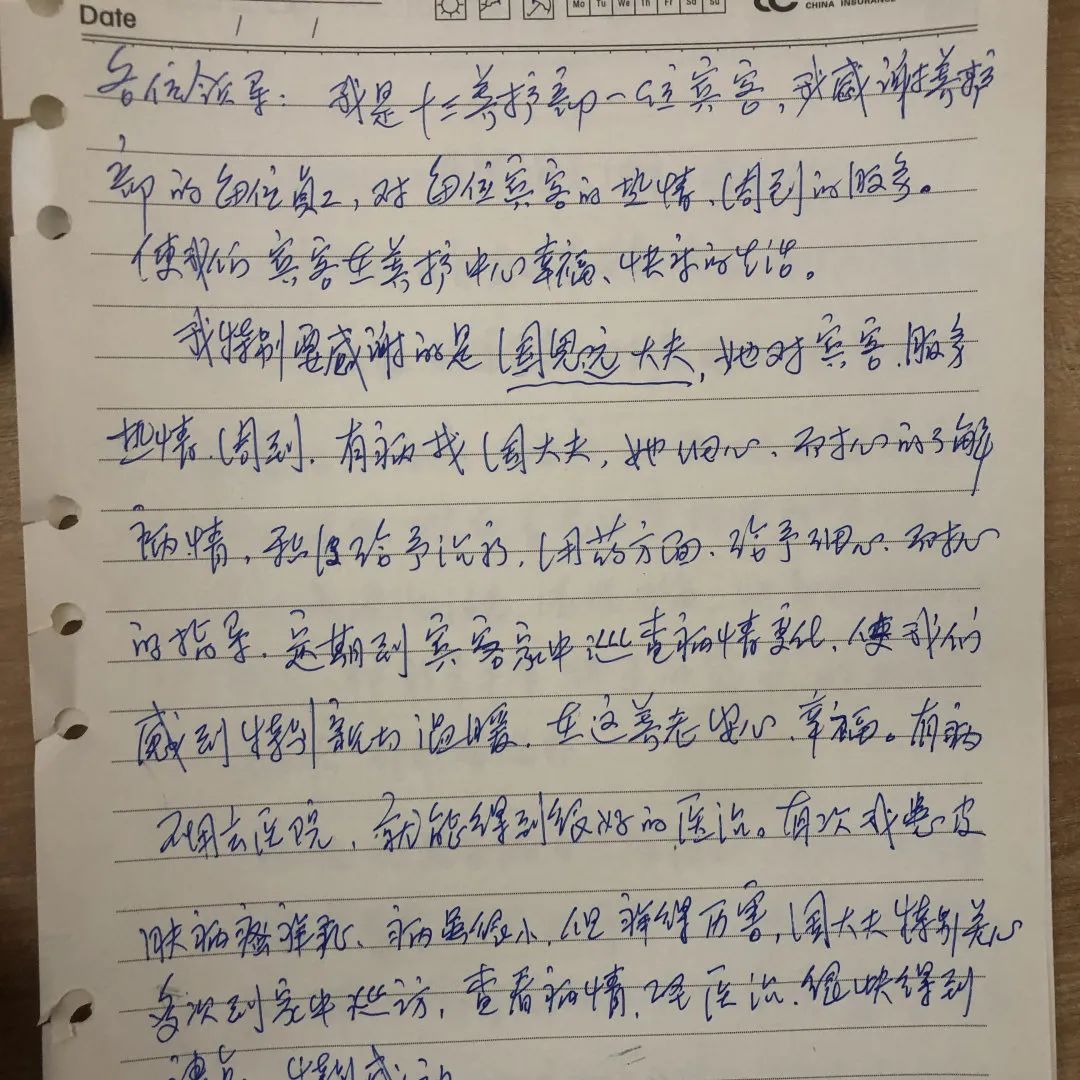 Date / /
Mo Tu We Th Fr Sa Su
CHINA INSURANCE
各位领导：我是十三养护部一位宾客，我感谢养护
部的每位员工，对每位宾客的热情、周到的服务。
使我们宾客在养护中心幸福、快乐的生活。
我特别要感谢的是周思远大夫，她对宾客服务
热情、周到、有病找周大夫，她细心、耐心的了解
病情，积极给予治疗，用药方面、给予细心、耐心
的指导、定期到宾客家中巡查病情变化，使我们
感到特别亲切温暖，在这养老安心、幸福。有病
不用去医院，就能得到很好的医治。有次我患皮
肤病瘙痒症、病虽很小，但痒得厉害，周大夫特别关心
多次到家中巡访，查看病情，经医治，很快得到
特别感